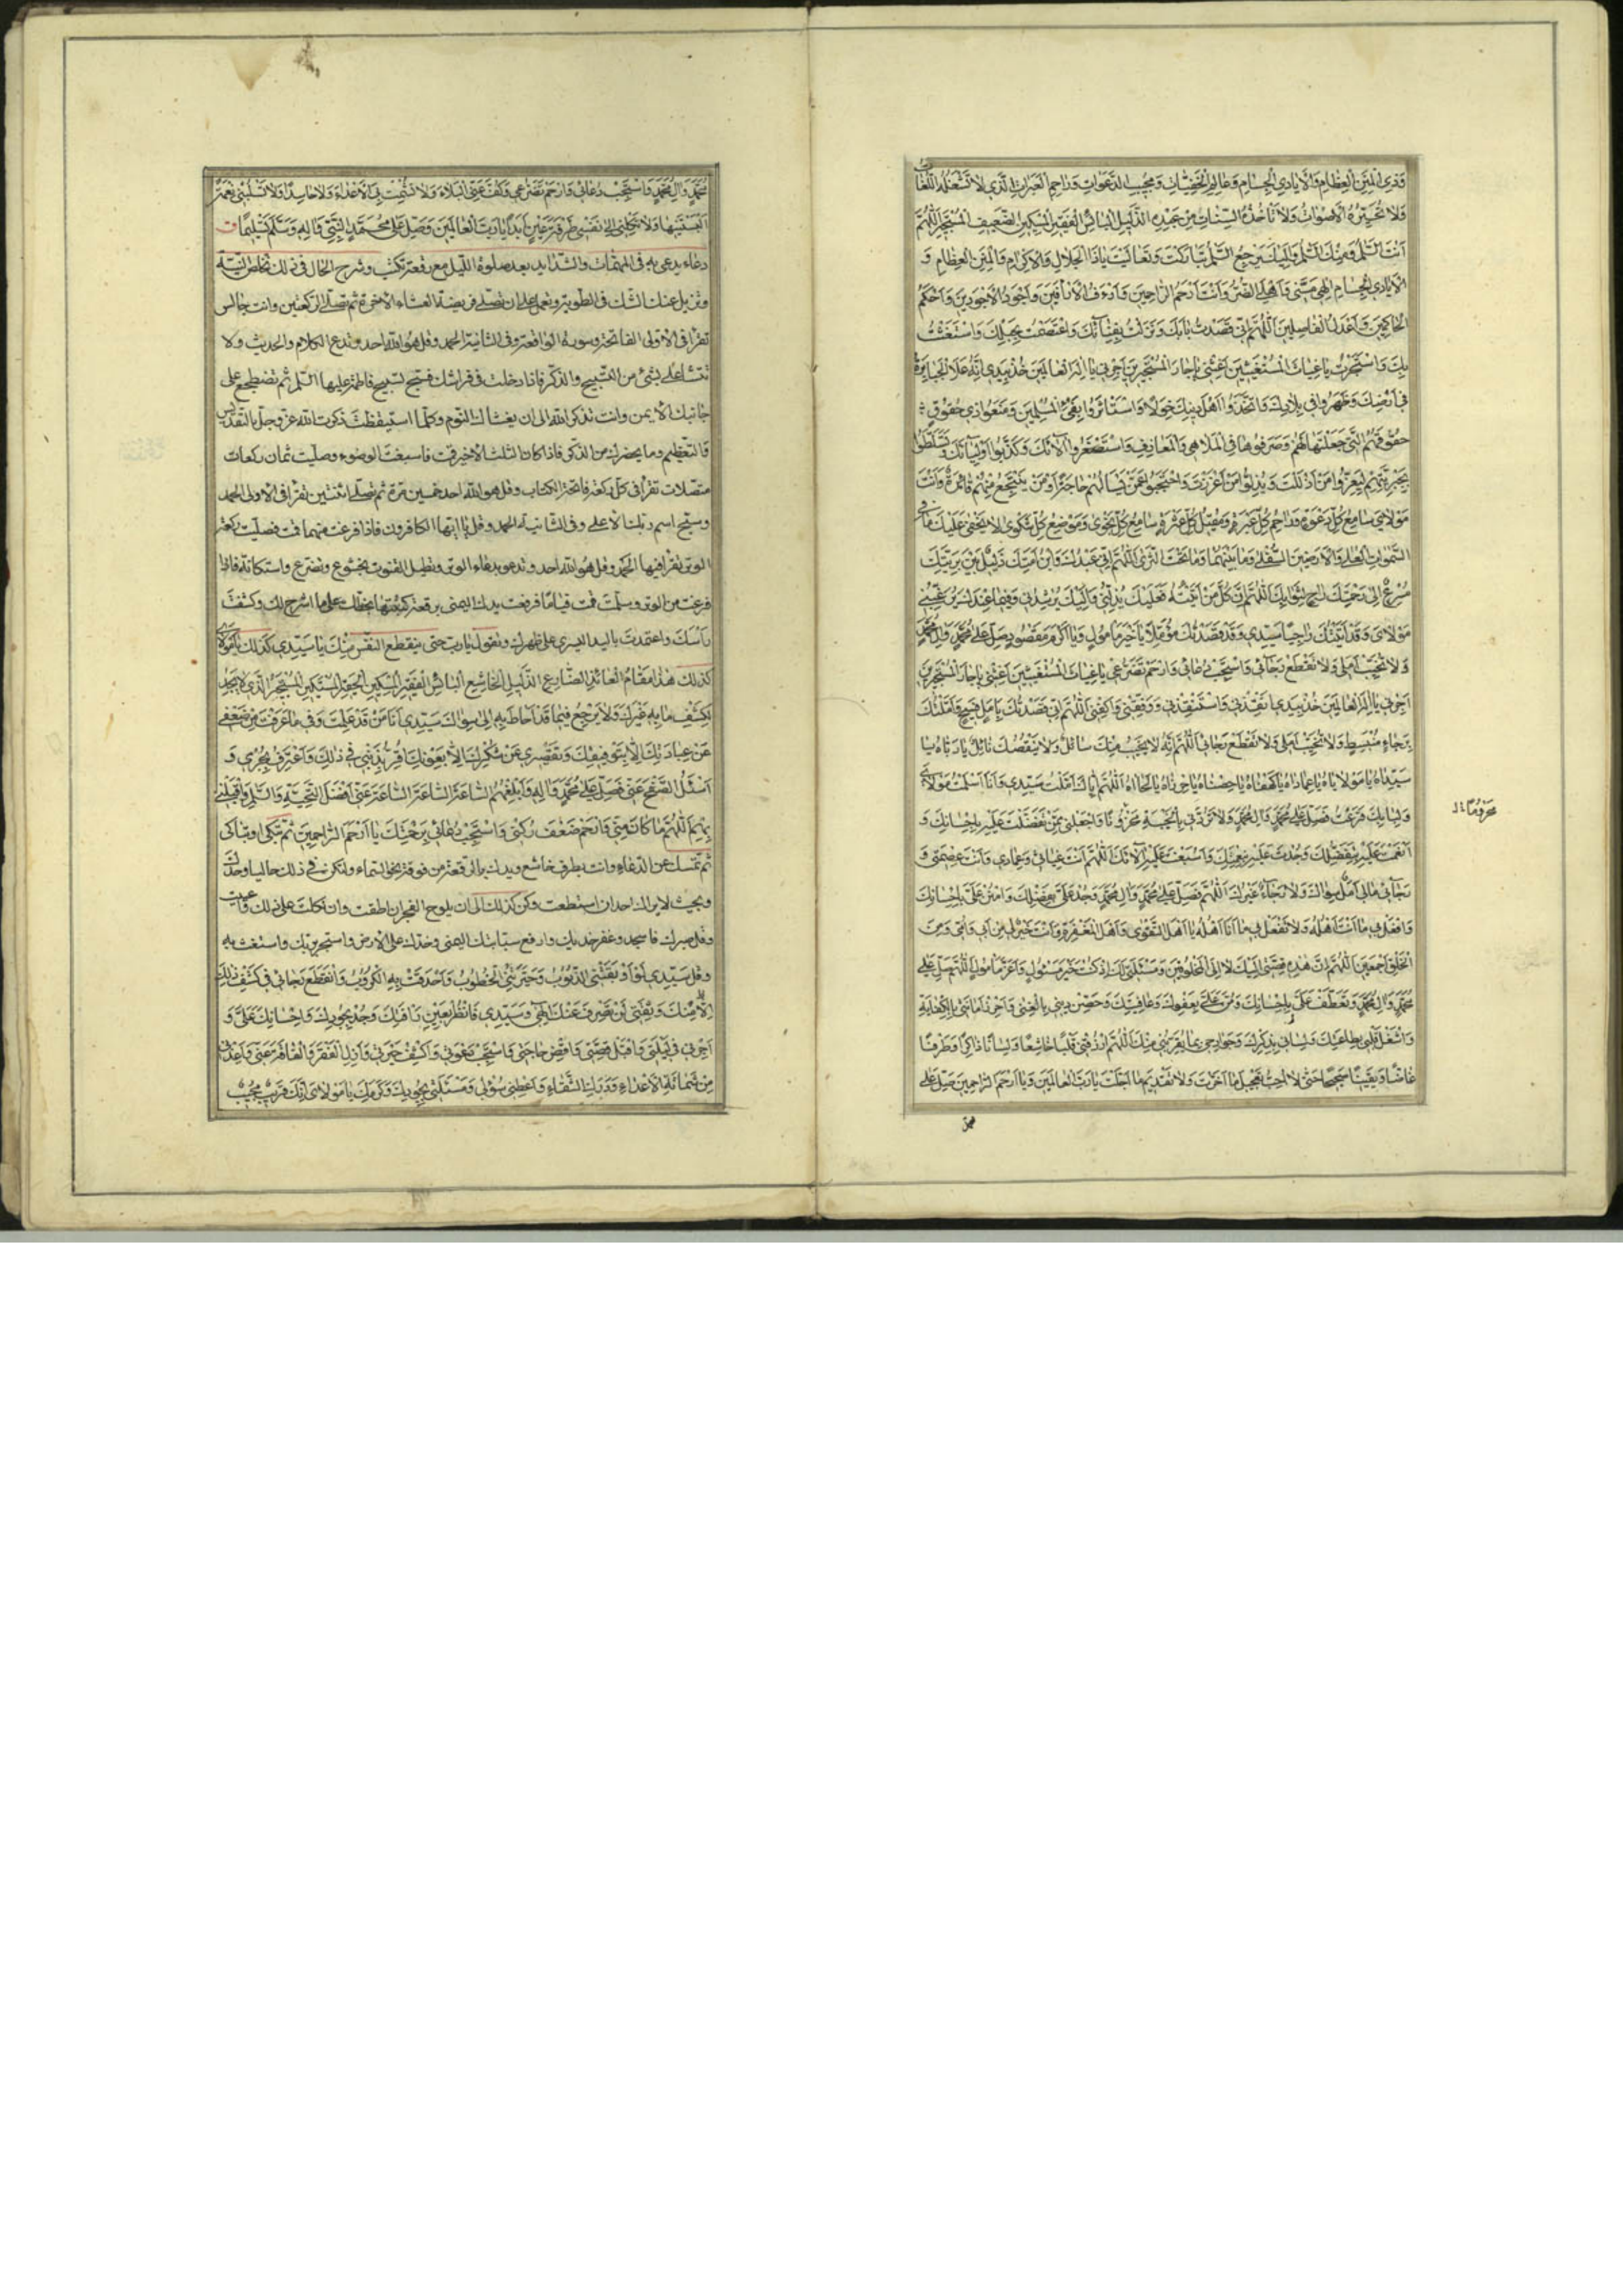 وَذِي الْمِنَنِ الْعِظَامِ وَالْأَيَادِي الْجِسَامِ وَعَالِمِ الْخَفِيَّاتِ وَمُجِيبِ الدَّعَوَاتِ وَرَاحِمِ الْعَبَرَاتِ الَّذِي لَا تَشْغَلُهُ اللُّغَاتُ
وَلَا تُحَيِّرُهُ الْأَصْوَاتُ وَلَا تَأْخُذُهُ السِّنَاتُ مِنْ عَبْدِهِ الذَّلِيلِ الْبَائِسِ الْفَقِيرِ الْمِسْكِينِ الضَّعِيفِ الْمُسْتَجِيرِ اللَّهُمَّ
أَنْتَ السَّلَامُ وَمِنْكَ السَّلَامُ وَإِلَيْكَ يَرْجِعُ السَّلَامُ تَبَارَكْتَ وَتَعَالَيْتَ يَا ذَا الْجَلَالِ وَالْإِكْرَامِ وَالْمِنَنِ الْعِظَامِ وَ
الْأَيَادِي الْجِسَامِ إِلٰهِي مَسَّنِي وَأَهْلِيَ الضُّرُّ وَأَنْتَ أَرْحَمُ الرَّاحِمِينَ وَأَرْءَفُ الْأَرْأَفِينَ وَأَجْوَدُ الْأَجْوَدِينَ وَأَحْكَمُ
الْحَاكِمِينَ وَأَعْدَلُ الْفَاصِلِينَ اللَّهُمَّ إِنِّي قَصَدْتُ بَابَكَ وَنَزَلْتُ بِفِنَائِكَ وَاعْتَصَمْتُ بِحَبْلِكَ وَاسْتَغَثْتُ
بِكَ وَاسْتَجَرْتُ يَا غِيَاثَ الْمُسْتَغِيثِينَ أَغِثْنِي يَا جَارَ الْمُسْتَجِيرِينَ أَجِرْنِي يَا إِلٰهَ الْعَالَمِينَ خُذْ بِيَدِي إِنَّهُ عَلَا الْجَبَابِرَةُ
فِي أَرْضِكَ وَظَهَرُوا فِي بِلَادِكَ وَاتَّخَذُوا أَهْلَ دِينِكَ خَوَلًا وَاسْتَأْثَرُوا بِفَيْءِ الْمُسْلِمِينَ وَمَنَعُوا ذَوِي حُقُوقٍ
حُقُوقَهُمُ الَّتِي جَعَلْتَهَا لَهُمْ وَصَرَفُوهَا فِي الْمَلَاهِي وَالْمَعَازِفِ وَاسْتَصْغَرُوا آلَائَكَ وَكَذَّبُوا أَوْلِيَائَكَ وَتَسَلَّطُوا
بِجَبَرِيَّتِهِمْ لِيُعِزُّوا مَنْ أَذْلَلْتَ وَيُذِلُّوا مَنْ أَعْزَزْتَ وَاحْتَجَبُوا عَمَّنْ يَسْأَلُهُمْ حَاجَةً أَوْ مَنْ يَنْتَجِعُ مِنْهُمْ فَائِدَةً وَأَنْتَ
مَوْلَايَ سَامِعُ كُلِّ دَعْوَةٍ وَرَاحِمُ كُلِّ عَبْرَةٍ وَمُقِيلُ كُلِّ عَثْرَةٍ سَامِعُ كُلِّ نَجْوَى وَمَوْضِعُ كُلِّ شَكْوَى لَا يَخْفَى عَلَيْكَ مَا فِي
السَّمٰوَاتِ الْعُلَى وَالْأَرَضِينَ السُّفْلَى وَمَا بَيْنَهُمَا وَمَا تَحْتَ الثَّرَى اللَّهُمَّ إِنِّي عَبْدُكَ وَابْنُ أَمَتِكَ ذَلِيلٌ بَيْنَ بَرِيَّتِكَ
مُسْرِعٌ إِلَى رَحْمَتِكَ رَاجٍ لِثَوَابِكَ اللَّهُمَّ إِنَّ كُلَّ مَنْ أَتَيْتُهُ فَعَلَيْكَ يَدُلُّنِي وَإِلَيْكَ يُرْشِدُنِي وَفِيمَا عِنْدَكَ يُرَغِّبُنِي
مَوْلَايَ وَقَدْ أَتَيْتُكَ رَاجِيًا سَيِّدِي وَقَدْ قَصَدْتُكَ مُؤَمِّلًا يَا خَيْرَ مَأْمُولٍ وَيَا أَكْرَمَ مَقْصُودٍ صَلِّ عَلَى مُحَمَّدٍ وَآلِ مُحَمَّدٍ
وَلَا تُخَيِّبْ أَمَلِي وَلَا تَقْطَعْ رَجَائِي وَاسْتَجِبْ دُعَائِي وَارْحَمْ تَضَرُّعِي يَا غِيَاثَ الْمُسْتَغِيثِينَ أَغِثْنِي يَا جَارَ الْمُسْتَجِيرِينَ
أَجِرْنِي يَا إِلٰهَ الْعَالَمِينَ خُذْ بِيَدِي أَنْقِذْنِي وَاسْتَنْقِذْنِي وَوَفِّقْنِي وَاكْفِنِي اللَّهُمَّ إِنِّي قَصَدْتُكَ بِأَمَلٍ فَسِيحٍ وَأَمَّلْتُكَ
بِرَجَاءٍ مُنْبَسِطٍ وَلَا تُخَيِّبْ أَمَلِي وَلَا تَقْطَعْ رَجَائِي اللَّهُمَّ إِنَّهُ لَا يَخِيبُ مِنْكَ سَائِلٌ وَلَا يَنْقُصُكَ نَائِلٌ يَا رَبَّاهُ يَا
سَيِّدَاهُ يَا مَوْلَايَاهُ يَا عِمَادَاهُ يَا كَهْفَاهُ يَا حِصْنَاهُ يَا حِرْزَاهُ يَا لَجَأَاهُ اللَّهُمَّ إِيَّاكَ أَمَّلْتُ سَيِّدِي وَأَنَا أَسْلَمْتُ مَوْلَايَ
وَلِبَابِكَ قَرَعْتُ فَصَلِّ عَلَى مُحَمَّدٍ وَآلِ مُحَمَّدٍ وَلَا تَرُدَّنِي بِالْخَيْبَةِ مَحْزُونًا وَاجْعَلْنِي مِمَّنْ تَفَضَّلْتَ عَلَيْهِ بِإِحْسَانِكَ وَ
محرومًا
أَنْعَمْتَ عَلَيْهِ بِتَفَضُّلِكَ وَجُدْتَ عَلَيْهِ بِنِعْمَتِكَ وَأَسْبَغْتَ عَلَيْهِ آلَائَكَ اللَّهُمَّ أَنْتَ غِيَاثِي وَعِمَادِي وَأَنْتَ عِصْمَتِي وَ
رَجَائِي مَالِي أَمَلٌ سِوَاكَ وَلَا رَجَاءٌ غَيْرُكَ اللَّهُمَّ فَصَلِّ عَلَى مُحَمَّدٍ وَآلِ مُحَمَّدٍ وَجُدْ عَلَيَّ بِفَضْلِكَ وَامْنُنْ عَلَيَّ بِإِحْسَانِكَ
وَافْعَلْ بِي مَا أَنْتَ أَهْلُهُ وَلَا تَفْعَلْ بِي مَا أَنَا أَهْلُهُ يَا أَهْلَ التَّقْوَى وَأَهْلَ الْمَغْفِرَةِ وَأَنْتَ خَيْرٌ لِي مِنْ أَبِي وَأُمِّي وَمِنَ
الْخَلْقِ أَجْمَعِينَ اللَّهُمَّ إِنَّ هٰذِهِ قِصَّتِي إِلَيْكَ لَا إِلَى الْمَخْلُوقِينَ وَمَسْئَلَتِي لَكَ إِذْ كُنْتَ خَيْرَ مَسْئُولٍ وَأَعَزَّ مَأْمُولٍ اللَّهُمَّ صَلِّ عَلَى
مُحَمَّدٍ وَآلِ مُحَمَّدٍ وَتَعَطَّفْ عَلَيَّ بِإِحْسَانِكَ وَمُنَّ عَلَيَّ بِعَفْوِكَ وَعَافِيَتِكَ وَحَصِّنْ دِينِي بِالْغِنَى وَاحْرُزْ أَمَانَتِي بِالْكِفَايَةِ
وَاشْغَلْ قَلْبِي بِطَاعَتِكَ وَلِسَانِي بِذِكْرِكَ وَجَوَارِحِي بِمَا يُقَرِّبُنِي مِنْكَ اللَّهُمَّ ارْزُقْنِي قَلْبًا خَاشِعًا وَلِسَانًا ذَاكِرًا وَطَرْفًا
غَاضًّا وَيَقِينًا صَحِيحًا حَتَّى لَا أُحِبَّ تَعْجِيلَ مَا أَخَّرْتَ وَلَا تَقْدِيمَ مَا أَجَّلْتَ يَا رَبَّ الْعَالَمِينَ وَيَا أَرْحَمَ الرَّاحِمِينَ صَلِّ عَلَى
مُحَمَّدٍ وَآلِ مُحَمَّدٍ وَاسْتَجِبْ دُعَائِي وَارْحَمْ تَضَرُّعِي وَكُفَّ عَنِّي الْبَلَاءَ وَلَا تُشْمِتْ بِيَ الْأَعْدَاءَ وَلَا حَاسِدًا وَلَا تَسْلُبْنِي نِعْمَةً
أَلْبَسْتَنِيهَا وَلَا تَكِلْنِي إِلَى نَفْسِي طَرْفَةَ عَيْنٍ أَبَدًا يَا رَبَّ الْعَالَمِينَ وَصَلِّ عَلَى مُحَمَّدٍ النَّبِيِّ وَآلِهِ وَسَلِّمْ تَسْلِيمًا
دعاء يدعى به فى المهمّات والشّدايد بعد صلوة اللّيل مع رقعة تكتب وشرح الحال فى ذلك تخلص النيّة
وتزيل عنك الشّك فى الطويّة وتعمل على ان تصلّى فريضة العشاء الاخرة ثم تصلّى الركعتين وانت جالس
تقرأ فى الاولى الفاتحة وسورة الواقعة وفى الثانية الحمد وقل هو الله احد وتدع الكلام والحديث ولا
تتشاغل بشئ من التسبيح والذكر فاذا دخلت فى فراشك فسبّح تسبيح فاطمة عليها السّلم ثم تضطجع على
جانبك الايمن وانت تذكر الله الى ان يغشاك النّوم وكلّما استيقظت ذكرت الله عزّ وجلّ بالتّقديس
والتعظيم وما يحضرك من الذكر فاذا كان الثلث الاخير قمت فاسبغت الوضوء وصلّيت ثمان ركعات
متّصلات تقرأ فى كلّ ركعة فاتحة الكتاب وقل هو الله احد خمسين مرّة ثم تصلّى اثنتين تقرأ فى الاولى الحمد
وسبّح اسم ربّك الاعلى وفى الثانية الحمد وقل يا ايّها الكافرون فاذا فرغت منهما قمت فصلّيت ركعة
الوتر تقرأ فيها الحمد وقل هو الله احد وتدعو بدعاء الوتر وتطيل القنوت بخشوع وتضرع واستكانة فاذا
فرغت من الوتر وسلّمت قمت قياما فرفعت يدك اليمنى برقعة كتبتها بخطك على ما اشرح لك وكشفت
رأسك واعتمدت باليد اليسرى على ظهرك وتقول يا ربّ حتى ينقطع النّفس منك يا سيّدى كذلك يا مولاى
كذلك هٰذَا مَقَامُ الْعَائِذِ الضَّارِعِ الذَّلِيلِ الْخَاشِعِ الْبَائِسِ الْفَقِيرِ الْمِسْكِينِ الْحَقِيرِ الْمُسْتَكِينِ الْمُسْتَجِيرِ الَّذِي لَا يَجِدُ
لِكَشْفِ مَا بِهِ غَيْرَكَ وَلَا يَرْجِعُ فِيمَا قَدْ أَحَاطَ بِهِ إِلَى سِوَاكَ سَيِّدِي أَنَا مَنْ قَدْ عَلِمْتَ وَفِي مَا عَرَفْتَ مِنْ ضَعْفِي
عَنْ عِبَادَتِكَ إِلَّا بِتَوْفِيقِكَ وَتَقْصِيرِي عَنْ شُكْرِكَ إِلَّا بِعَوْنِكَ أُقِرُّ بِذَنْبِي فِي ذٰلِكَ وَأَعْتَرِفُ بِجُرْمِي وَ
أَسْئَلُ الصَّفْحَ عَنِّي فَصَلِّ عَلَى مُحَمَّدٍ وَآلِهِ وَأَبْلِغْهُمُ السَّاعَةَ السَّاعَةَ السَّاعَةَ عَنِّي أَفْضَلَ التَّحِيَّةِ وَالسَّلَامِ وَأَقِلْنِي
بِهِمُ اللَّهُمَّ مَا كَانَ مِنِّي وَارْحَمْ ضَعْفَ رُكْنِي وَاسْتَجِبْ دُعَائِي بِرَحْمَتِكَ يَا أَرْحَمَ الرَّاحِمِينَ ثم تبكى او تباكى
ثم تمسك عن الدّعاء وانت بطرف خاشع ويدك بالرقعة من فوقه نحو السّماء ولتكن فى ذلك خاليا وحدك
وبحيث لا يراك احد ان استطعت وكن كذلك الى ان يلوح الفجر ان اطقت وان نكلت على ذلك وعييت
وقل صبرك فاسجد وعفّر خديك وارفع سبّابتك اليمنى وخدّك على الارض واستجر بربّك واستغث به
وقل سَيِّدِي أَوْبَقَتْنِي الذُّنُوبُ وَحَيَّرَتْنِي الْخُطُوبُ وَأَحْدَقَتْ بِيَ الْكُرُوبُ وَانْقَطَعَ رَجَائِي فِي كَشْفِ ذٰلِكَ
إِلَّا مِنْكَ وَثِقَتِي لَنْ تَنْصَرِفَ عَنْكَ إِلٰهِي وَسَيِّدِي فَانْظُرْ بِعَيْنِ رَأْفَتِكَ وَجُدْ بِجُودِكَ وَإِحْسَانِكَ عَلَيَّ وَ
أَجِرْنِي فِي لَيْلَتِي وَاقْبَلْ قِصَّتِي وَاقْضِ حَاجَتِي وَاسْتَجِبْ دَعْوَتِي وَاكْشِفْ حَيْرَتِي وَأَزِلِ الْفَقْرَ وَالْفَاقَةَ عَنِّي وَأَعِذْنِي
مِنْ شَمَاتَةِ الْأَعْدَاءِ وَدَرَكِ الشَّقَاءِ وَأَعْطِنِي سُؤْلِي وَمَسْئَلَتِي بِجُودِكَ وَكَرَمِكَ يَا مَوْلَايَ إِنَّكَ قَرِيبٌ مُجِيبٌ